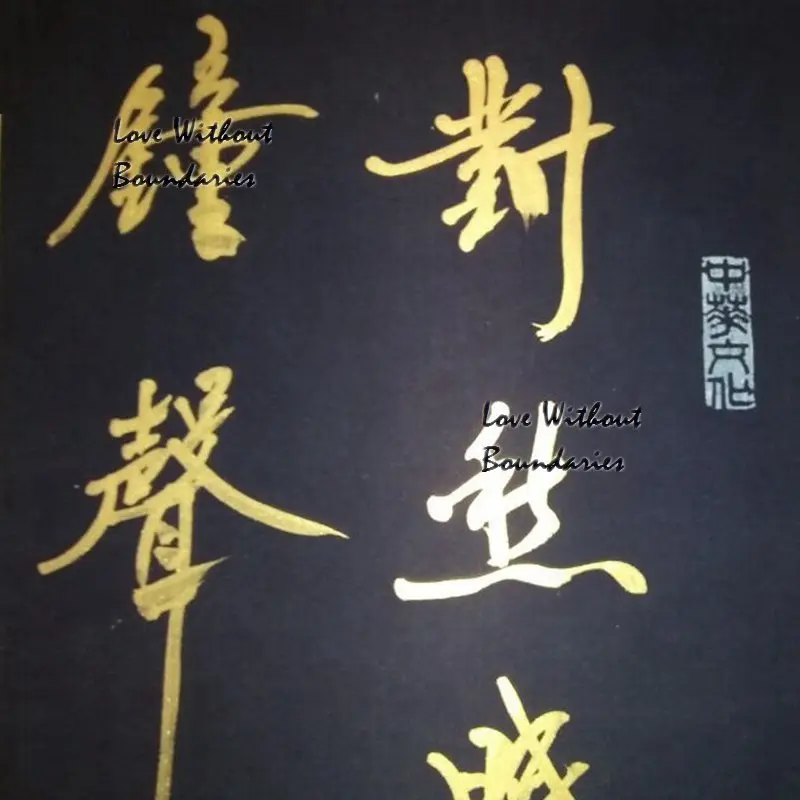 中華文化
對愁眠
鐘聲
Love Without
Boundaries
Love Without
Boundaries